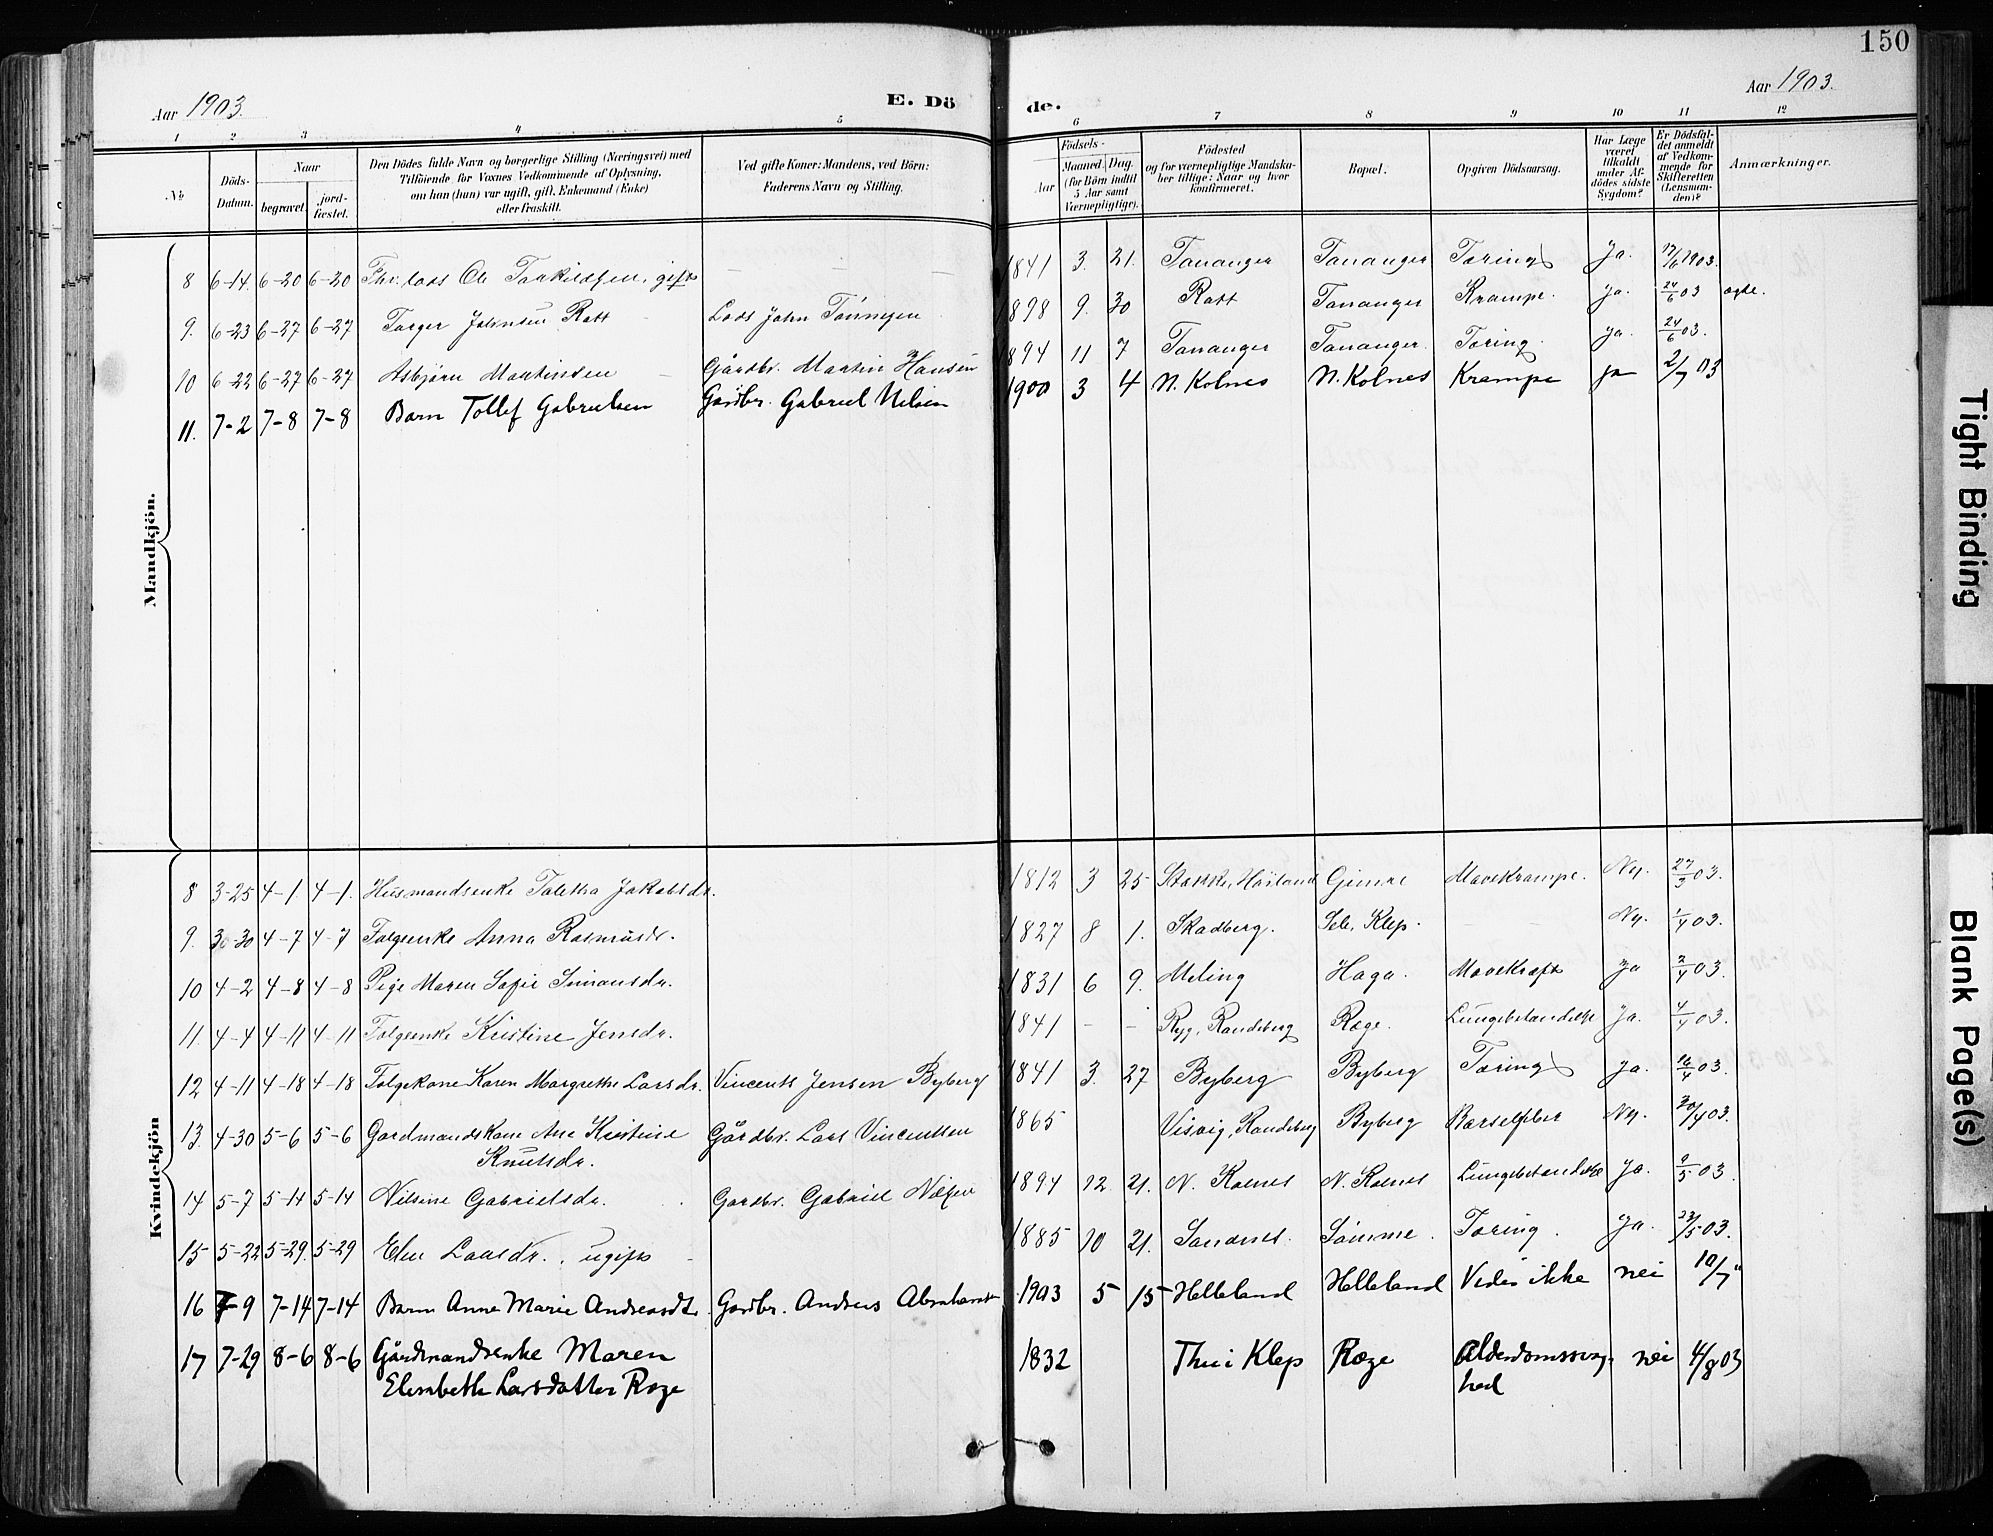 150
Aar 1903.
E. Dö
de.
Aar 1903.
1 2 3 4 5 6 7 8 9 10 11 12
No
Döds-
Datum.
Naar
begravet.
jord-
fæstet.
Den Dödes fulde Navn og borgerlige Stilling (Næringsvei) med
Tilföiende for Voxnes Vedkommende af Oplysning,
om han (hun) var ugift, gift, Enkemand (Enke)
eller fraskilt.
Ved gifte Koner: Mandens, ved Börn:
Faderens Navn og Stilling.
Födsels-
Aar
Maaned. Dag.
(for Börn indtil
5 Aar samt
Værnepligtige).
Födested
og for værnepligtige Mandska-
ber tillige: Naar og hvor
konfirmeret.
Bopæl.
Opgiven Dödsaarsag.
Har Læge
været
tilkaldt
under Af-
dödes sidste
Sygdom?
Er Dödsfal-
det anmeldt
af Vedkom-
mende for
Skifteretten
(Lensman-
den)?
Anmærkninger.
Mandkjön.
8 6-14 6-20 6-20 Fhv. lods Ole Torkildsen, gift — — — 1841 3. 21. Tananger Tananger Tæring Ja. 17/6 1903.
9. 6-23 6-27 6-27 Torger Johnsen Rott Lods John Tönnesen 1898 9. 30 Rott Tananger Krampe. Ja. 24/6 03
10 6-22 6-27 6-27 Asbjørn Martinsen Gårdbr. Martin Hansen 1894 11 7 Tananger Tananger. Tæring. Ja. 24/6 03.
11. 7-2 7-8 7-8 Barn Tollef Gabrielsen Gårdbr. Gabriel Nilsen 1900 3 4 N. Kolnes N. Kolnes Krampe ja 2/7 03
Kvindekjön
8 3-25 4-1. 4-1. Husmandsenke Taletha Jakobsdr. 1812 3 25 Stokke, Høiland Gimre Mavekrampe. Nej. 27/3 03.
9. 30 4-7 4-7 Folgeenke Anna Rasmusdr. 1827 8 1. Skadberg. Sele, Klep. — — Nej. 1/4 03.
10 4-2 4-8 4-8 Pige Maren Sofie Simonsdr. 1831 6 9. Meling Haga. Mavekræft Ja 2/4 03.
11. 4-4 4-11 4-11 Folgeenke Kristine Jensdr. 1841 - - Ryg, Randeberg Ræge. Lungebetændelse Ja. 4/4 03.
12 4-11 4-18 4-18 Folgekone Karen Margrethe Larsdr. Vincents Jensen Byberg 1841 3. 27 Byberg Byberg Tæring Ja. 16/4 03.
13. 4-30 5-6 5-6 Gardmandskone Ane Kristine Gårdbr. Lars Vincentsen 1865 Visvig, Randeberg Byberg Barselfeber Nej. 30/4 03.
Knutsdr.
14 5-7 5-14 5-14 Nilsine Gabrielsdr. Gardbr. Gabriel Nilsen 1894 12 21. N. Kolnes N. Kolnes Lungebetændelse Ja. 9/5 03.
15 5-22 5-29. 5-29 Elen Larsdr., ugift 1885 10 21. Sandnes. Sömme. Tæring. Ja. 23/5 03.
16 7-9 7-14 7-14 Barn Anne Marie Andreasdt. Gardbr. Andreas 1903 5 15 Helleland Helleland Vides ikke nei 10/7 "
17 7-29 8-6 8-6 Gårdmandsenke Maren 1832 Thu i Klep Ræge Alderdomssvag- nei 4/8 03
Elisabeth Larsdatter Ræge hed
Tight Binding
Blank Page(s)